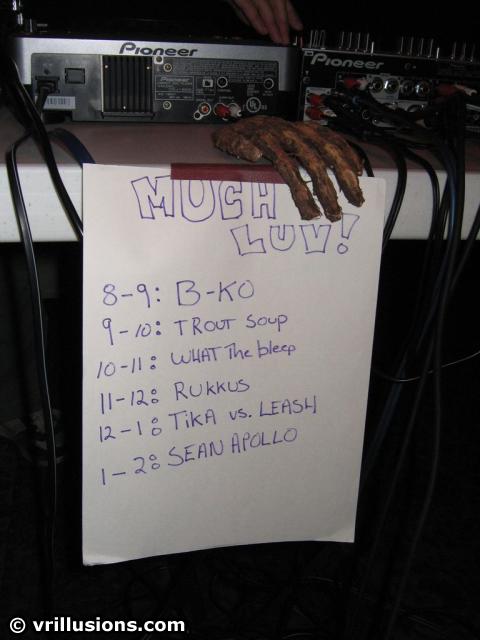 Pioneer
Pioneer
MUCH
LUV!
8-9: B-KO
9-10: TROUT SOUP
10-11: WHAT The bleep
11-12: RUKKUS
12-1: TIKA vs. LEASH
1-2: SEAN APOLLO
© vrillusions.com